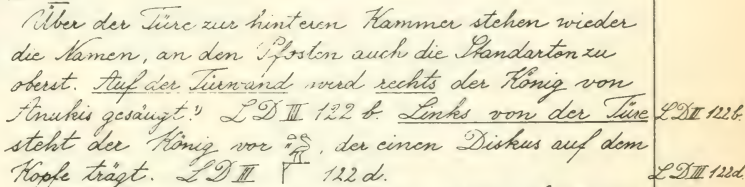 Über der Türe zur hinteren Kammer stehen wieder
die Namen, an den Pfosten auch die Standarten zu
oberst. Auf der Türwand wird rechts der König von
Anukis gesäugt. LD III 122 b. Links von der Türe LD III 122 b.
steht der König vor , der einen Diskus auf dem
Kopfe trägt. LD III 122 d. LD III 122 d.